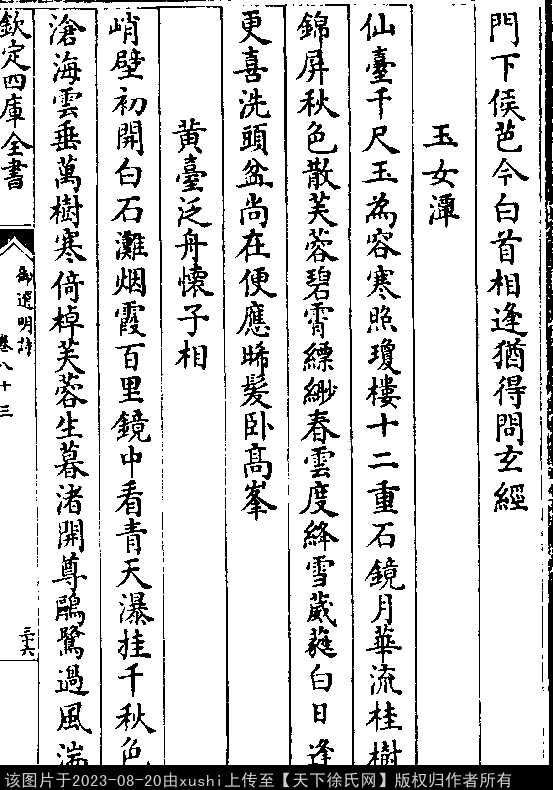 門下侯芭今白首相逢猶得問玄經
玉女潭
仙臺千尺玉為容寒照瓊樓十二重石鏡月華流桂樹
錦屏秋色散芙蓉碧霄縹緲春雲度絳雪葳蕤白日逢
更喜洗頭盆尚在便應晞髪卧髙峯
黄臺泛舟懷子相
峭壁初開白石灘烟霞百里鏡中看青天瀑挂千秋色
滄海雲垂萬樹寒倚棹芙蓉生暮渚開尊鷗鷺過風湍
欽定四庫全書
御選明詩
卷八十三
三十六
该图片于2023-08-20由xushi上传至【天下徐氏网】版权归作者所有